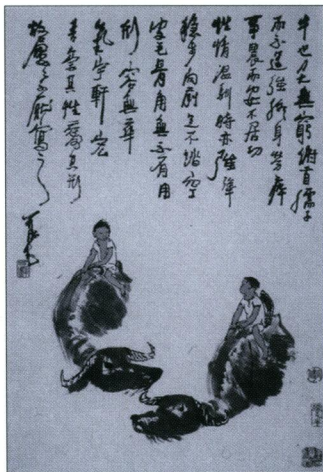 牛也力大無窮俯首孺子
而不逞強終身勞瘁
事農而安不居功
性情溫馴時亦強犟
穩步向前足不踏空
皮毛骨角無不有用
形容無華
氣宇軒宏
吾崇其性愛其形
故屢屢不厭寫之 可染